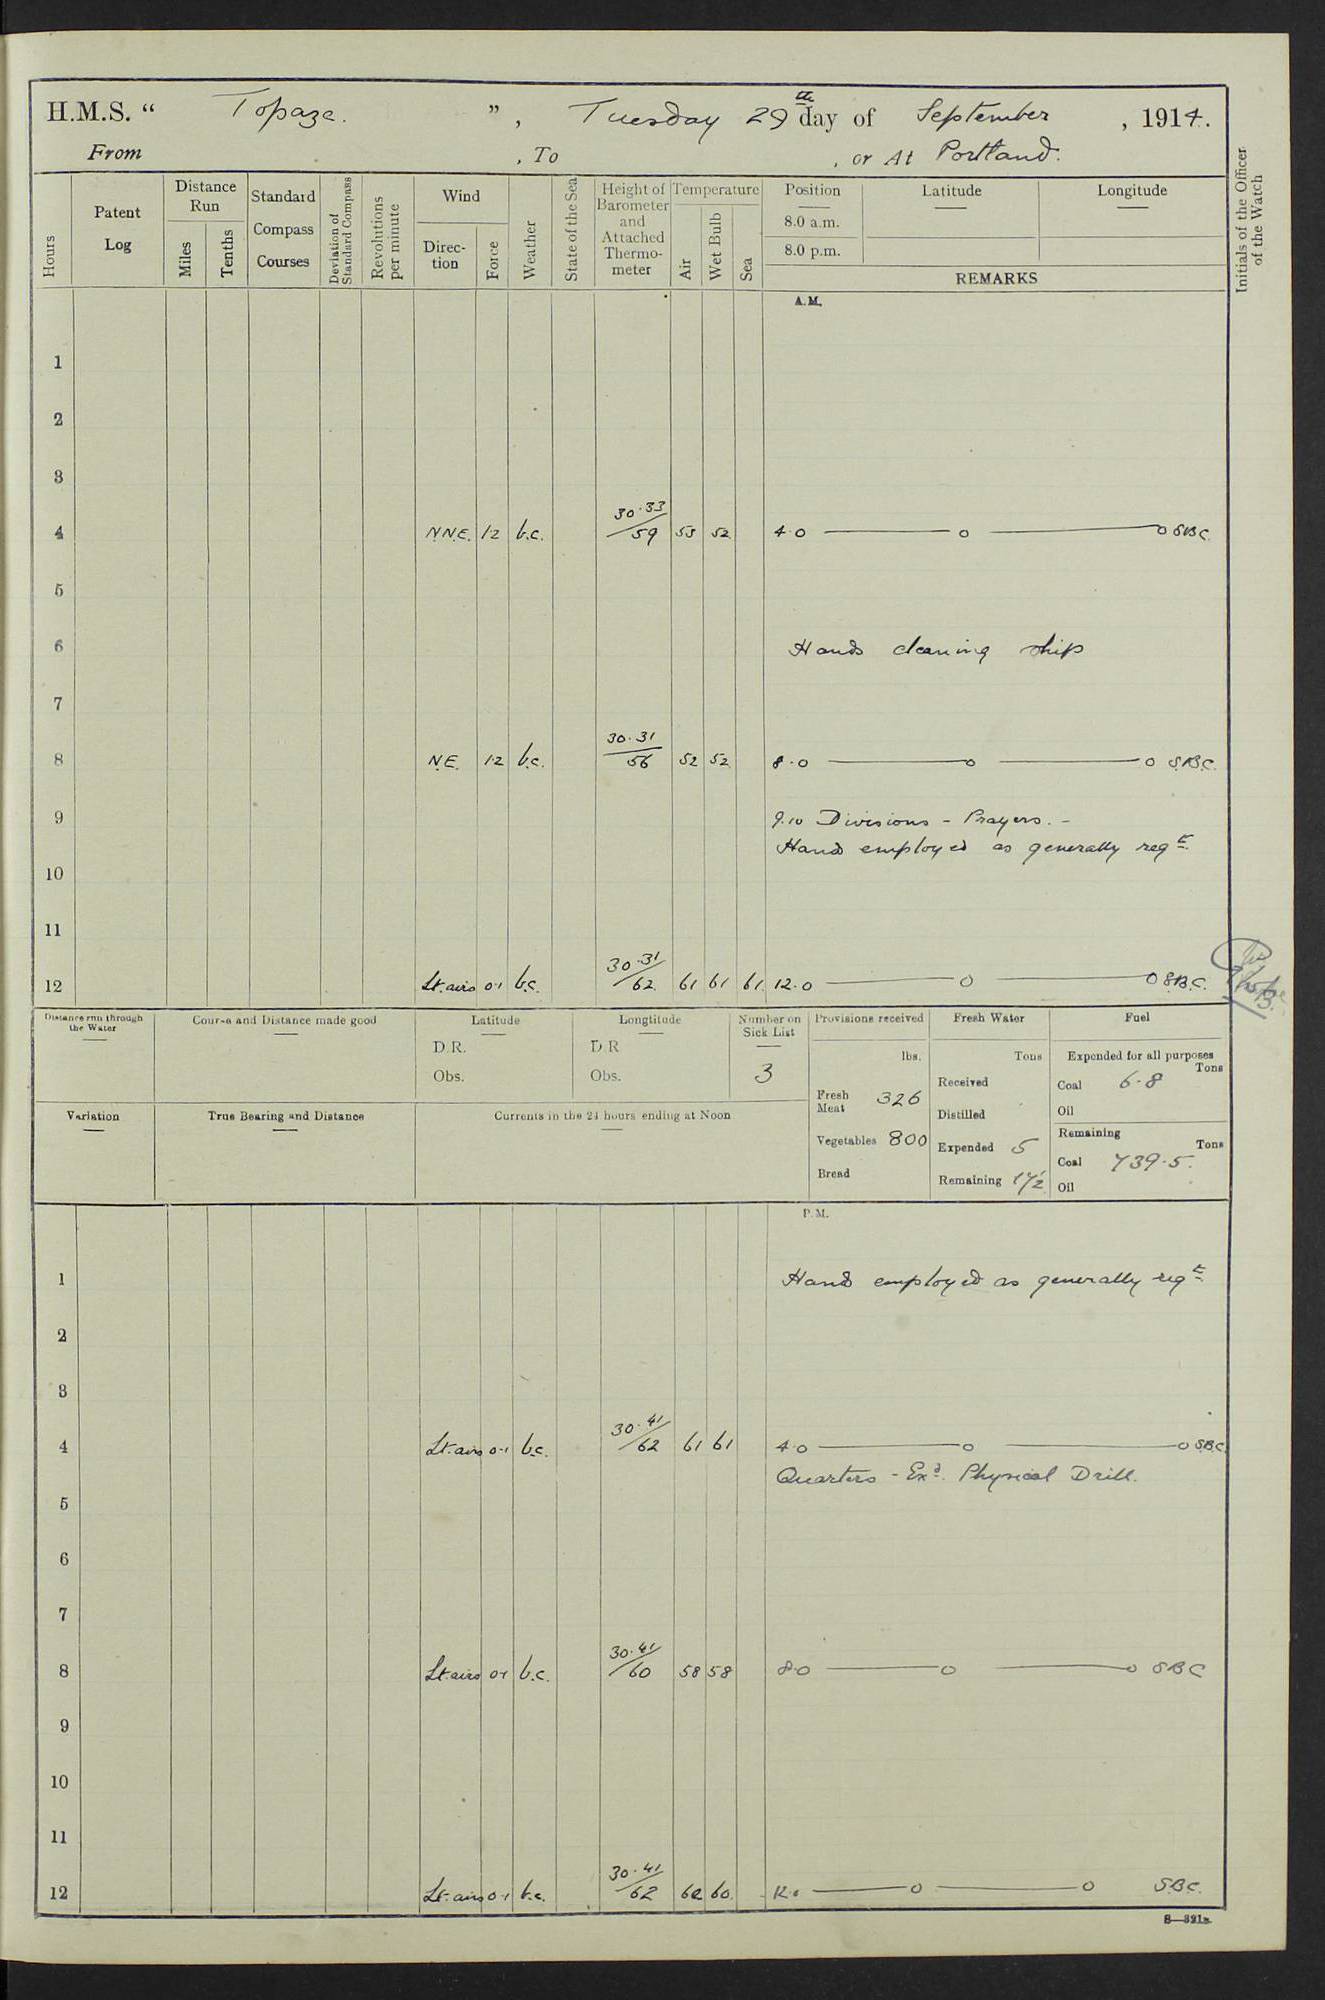 H.M.S. “ Topaze. ” , Tuesday 29th day of September , 1914.
From , To , or At Portland.
Hours
Patent Log
Distance Run
Miles
Tenths
Standard Compass Courses
Deviation of Standard Compass
Revolutions per minute
Wind
Direc-tion
Force
Weather
State of the Sea
Height of Barometer and Attached Thermo-meter
Temperature
Air
Wet Bulb
Sea
Position Latitude Longitude
8.0 a.m.
8.0 p.m.
REMARKS
Initials of the Officer of the Watch
A.M.
1
2
3
4 N.N.E. 1-2 b.c. 30.33/59 53 52 4.0 o o S.B.C.
5
6 Hands cleaning ship
7
8 N.E. 1-2 b.c. 30.31/56 52 52 8.0 o o S.B.C.
9 9.10 Divisions - Prayers. -
Hands employed as generally reqd.
10
11
12 Lt. airs 0-1 b.c. 30.31/62 61 61 61 12.0 o o S.B.C.
Distance run through the Water
Course and Distance made good
Latitude
D.R.
Obs.
Longtitude
D.R
Obs.
Number on Sick List
3
Provisions received
lbs.
Fresh Meat 326
Vegetables 800
Bread
Fresh Water
Tons
Received
Distilled
Expended 5
Remaining 171/2
Fuel
Expended for all purposes
Tons
Coal 6.8
Oil
Remaining
Tons
Coal 739.5
Oil
Variation
True Bearing and Distance
Currents in the 24 hours ending at Noon
P.M.
1 Hands employed as generally reqd.
2
3
4 Lt. airs 0-1 b.c. 30.41/62 61 61 4.0 o o S.B.C.
Quarters - Exd. Physical Drill.
5
6
7
8 Lt. airs 0-1 b.c. 30.41/60 58 58 8.0 o o S.B.C
9
10
11
12 Lt. airs 0-1 b.c. 30.41/62 62 60 12.0 o o S.B.C.